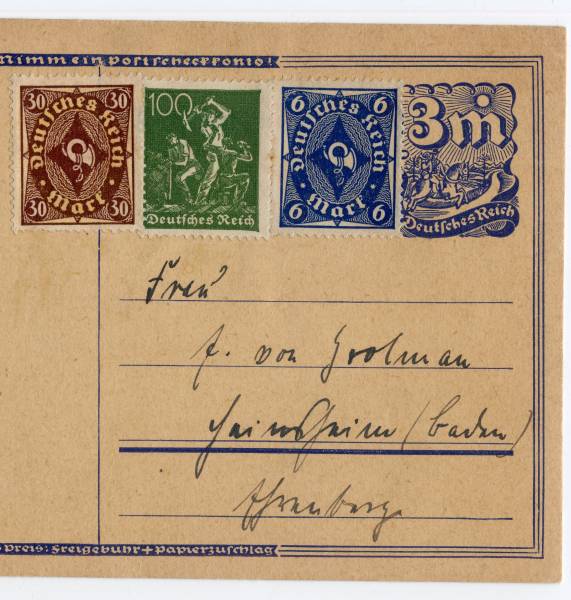 Nimm ein Postscheckkonto!
30 30
Deutsches Reich
Mark
30 30
100
Deutsches Reich
6 6
Deutsches Reich
Mark
6 6
3 m
Deutsches Reich
Frau
f. von Grolman
Heinsheim (Baden)
Ehrenberg.
Preis: Freigebühr + Papierzuschlag